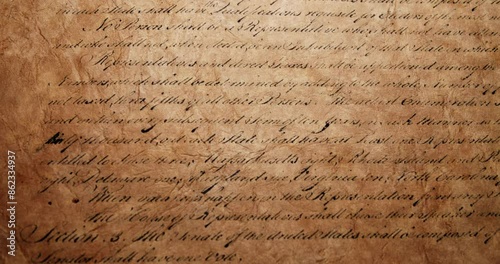 State shall have the Qualifications requisite for Electors of the
No Person shall be a Representative who shall not have
and who shall not, when elected, be an Inhabitant of that State in which
Representatives and direct Taxes shall be apportioned among
Numbers, which shall be determined by adding to the whole Number of
not taxed, three fifths of all other Persons. The actual Enumeration
and within every subsequent Term of ten Years, in such Manner as
thirty Thousand, but each State shall have at Least one Representat
entitled to chuse three, Massachusetts eight, Rhode Island and
eight, Delaware one, Maryland six, Virginia ten, North Carolina
When vacancies happen in the Representation from any
The House of Representatives shall chuse their Speaker and
Section. 3. The Senate of the United States shall be composed of
Senator shall have one Vote.
Adobe Stock | #862334937